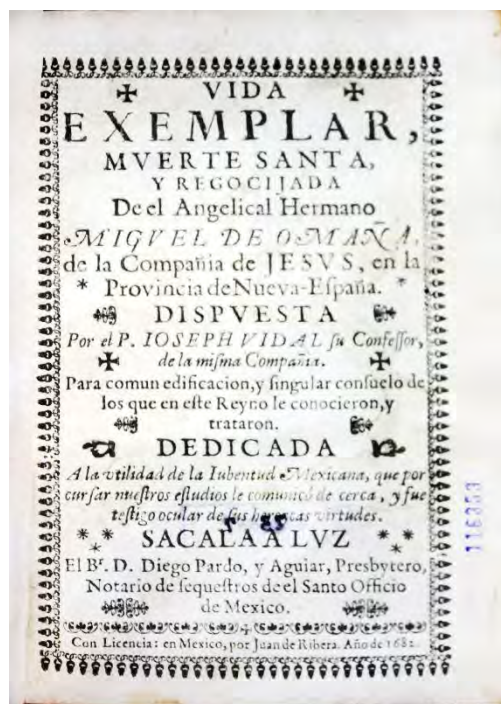 VIDA
EXEMPLAR,
MVERTE SANTA,
Y REGOCIJADA
De el Angelical Hermano
MIGVEL DE OMAÑA,
de la Compañia de JESVS, en la
* Provincia de Nueva-España. *
DISPVESTA
Por el P. IOSEPH VIDAL ſu Confeſſor,
de la miſma Compañia.
Para comun edificacion, y ſingular conſuelo de
los que en eſte Reyno le conocieron, y
trataron.
DEDICADA
A la vtilidad de la Iubentud Mexicana, que por
curſar nueſtros eſtudios le comunicó de cerca, y fue
teſtigo ocular de ſus heroycas virtudes.
SACALA A LVZ
El Br. D. Diego Pardo, y Aguiar, Presbytero,
Notario de ſequeſtros de el Santo Officio
de Mexico.
Con Licencia: en Mexico, por Juan de Ribera. Año de
116353